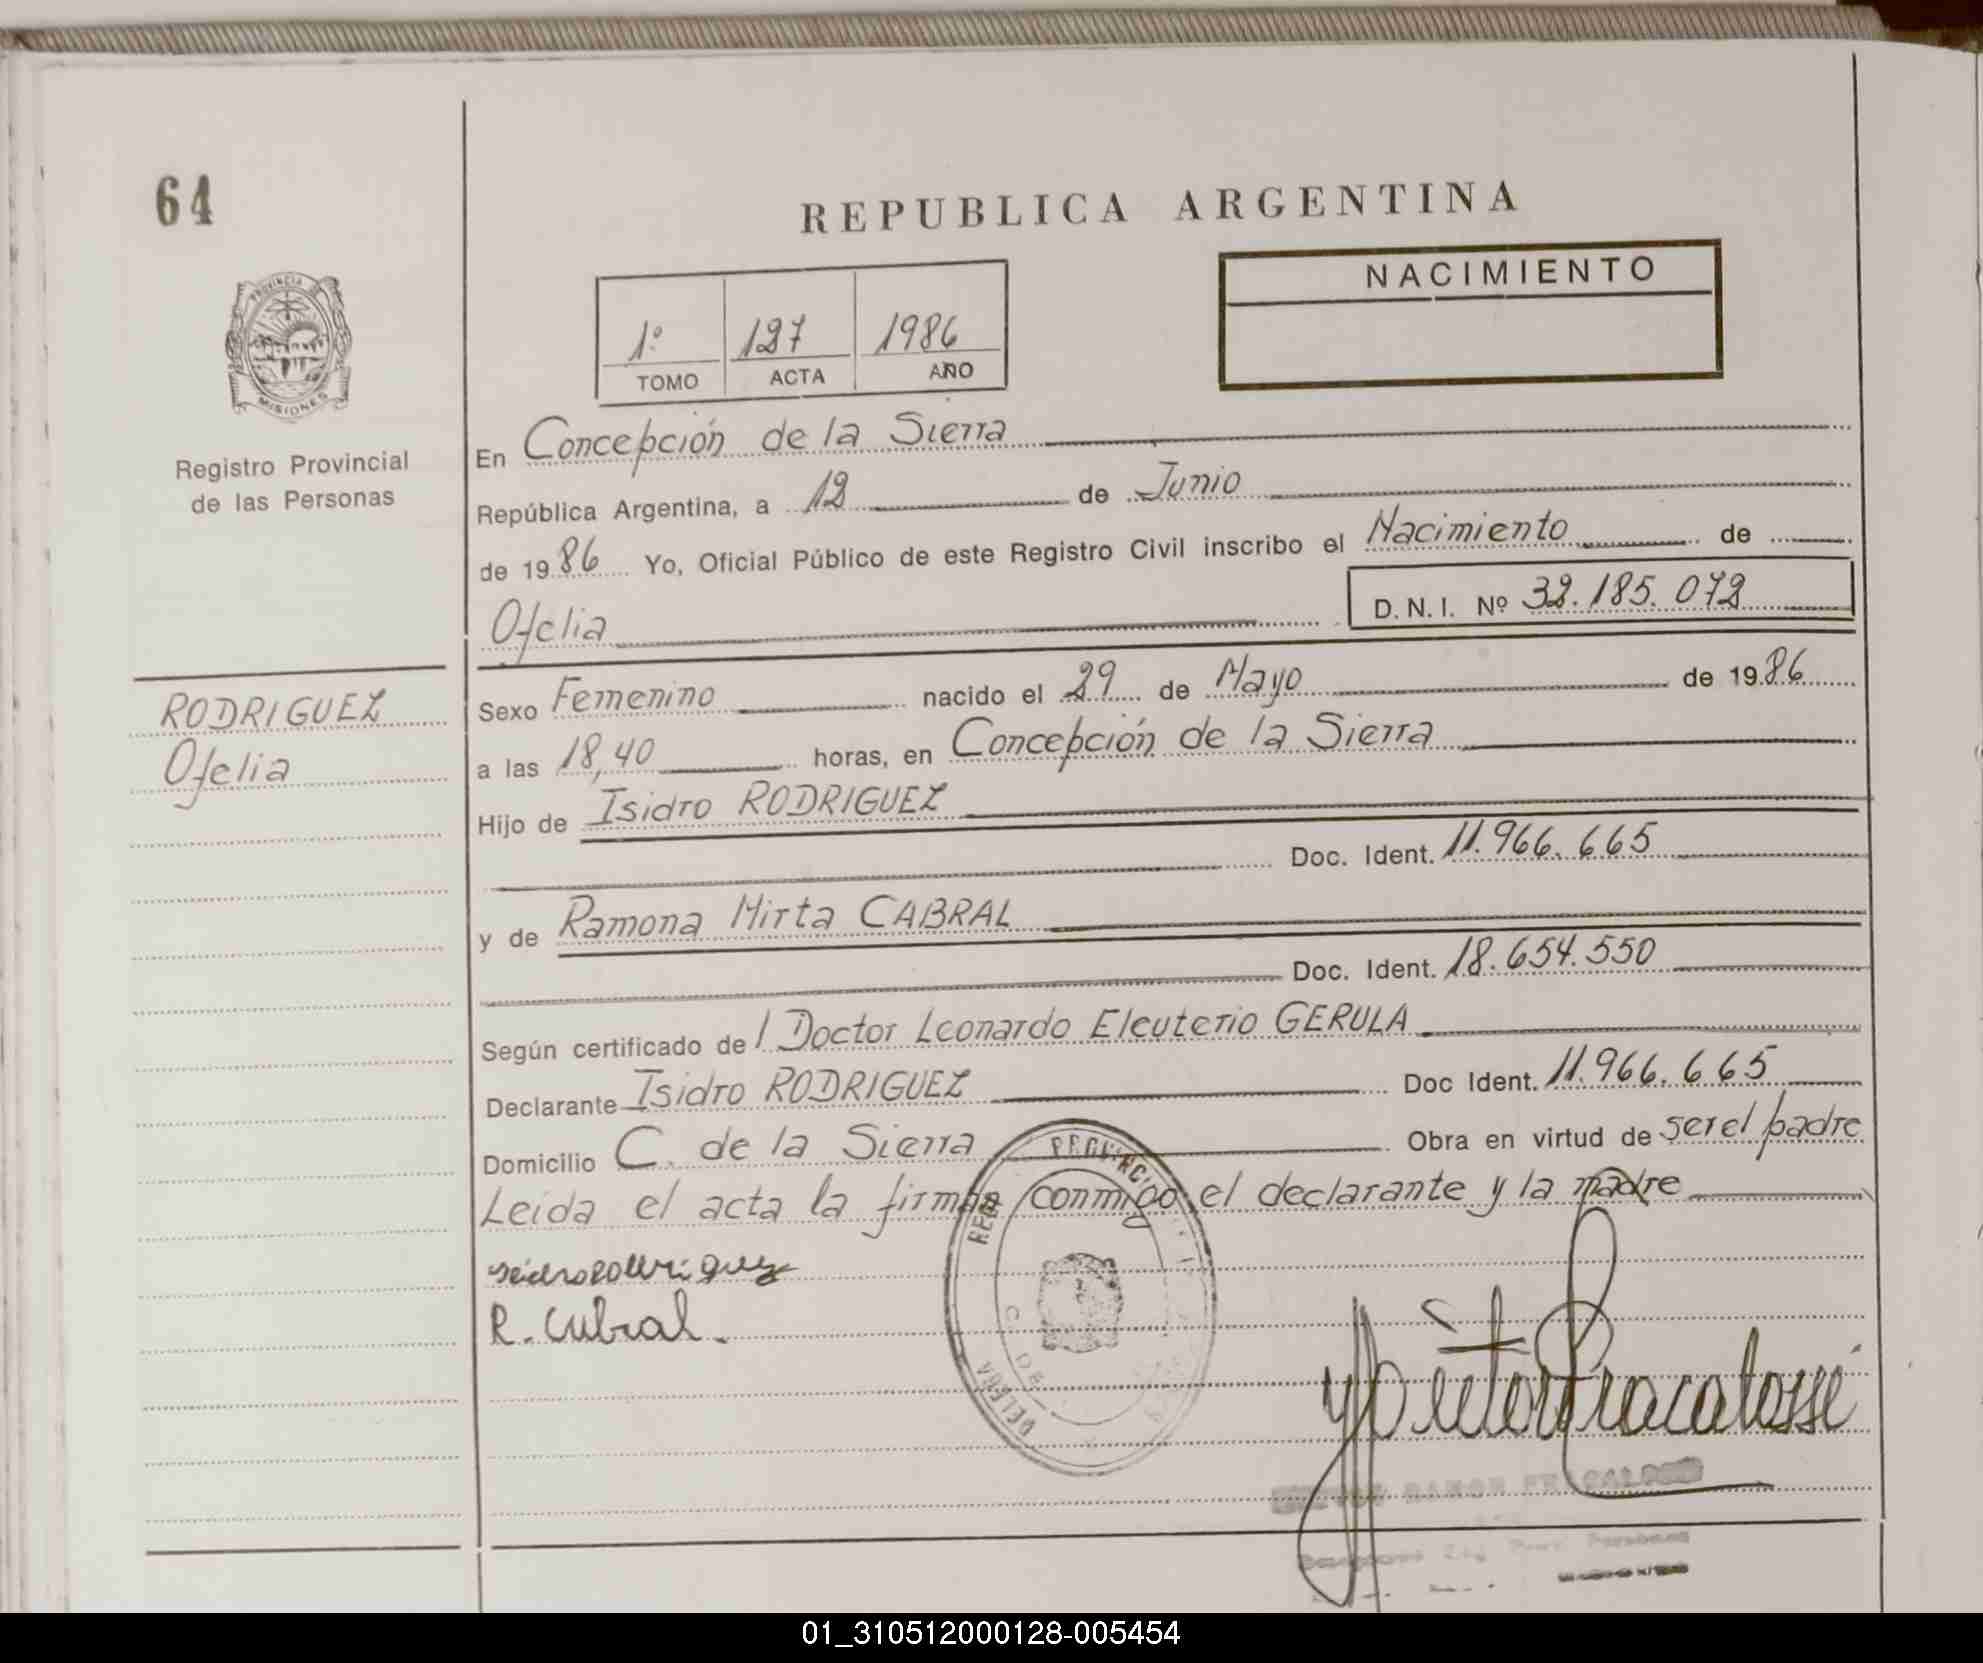 64
REPUBLICA ARGENTINA
PROVINCIA DE
MISIONES
Registro Provincial
de las Personas
1º 127 1986
TOMO ACTA AÑO
NACIMIENTO
En Concepción de la Sierra
República Argentina, a 12 de Junio
de 1986 Yo, Oficial Público de este Registro Civil inscribo el Nacimiento de
Ofelia D.N.I. Nº 32.185.072
RODRIGUEZ
Ofelia
Sexo Femenino nacido el 29 de Mayo de 1986
a las 18,40 horas, en Concepción de la Sierra
Hijo de Isidro RODRIGUEZ
Doc. Ident. 11.966.665
y de Ramona Mirta CABRAL
Doc. Ident. 18.654.550
Según certificado del Doctor Leonardo Eleuterio GERULA
Declarante Isidro RODRIGUEZ Doc Ident. 11.966.665
Domicilio C. de la Sierra Obra en virtud de ser el padre
Leída el acta la firman conmigo el declarante y la madre
isidro rodriguez
R. Cabral.
RAMON FRACALOSSI
01_310512000128-005454